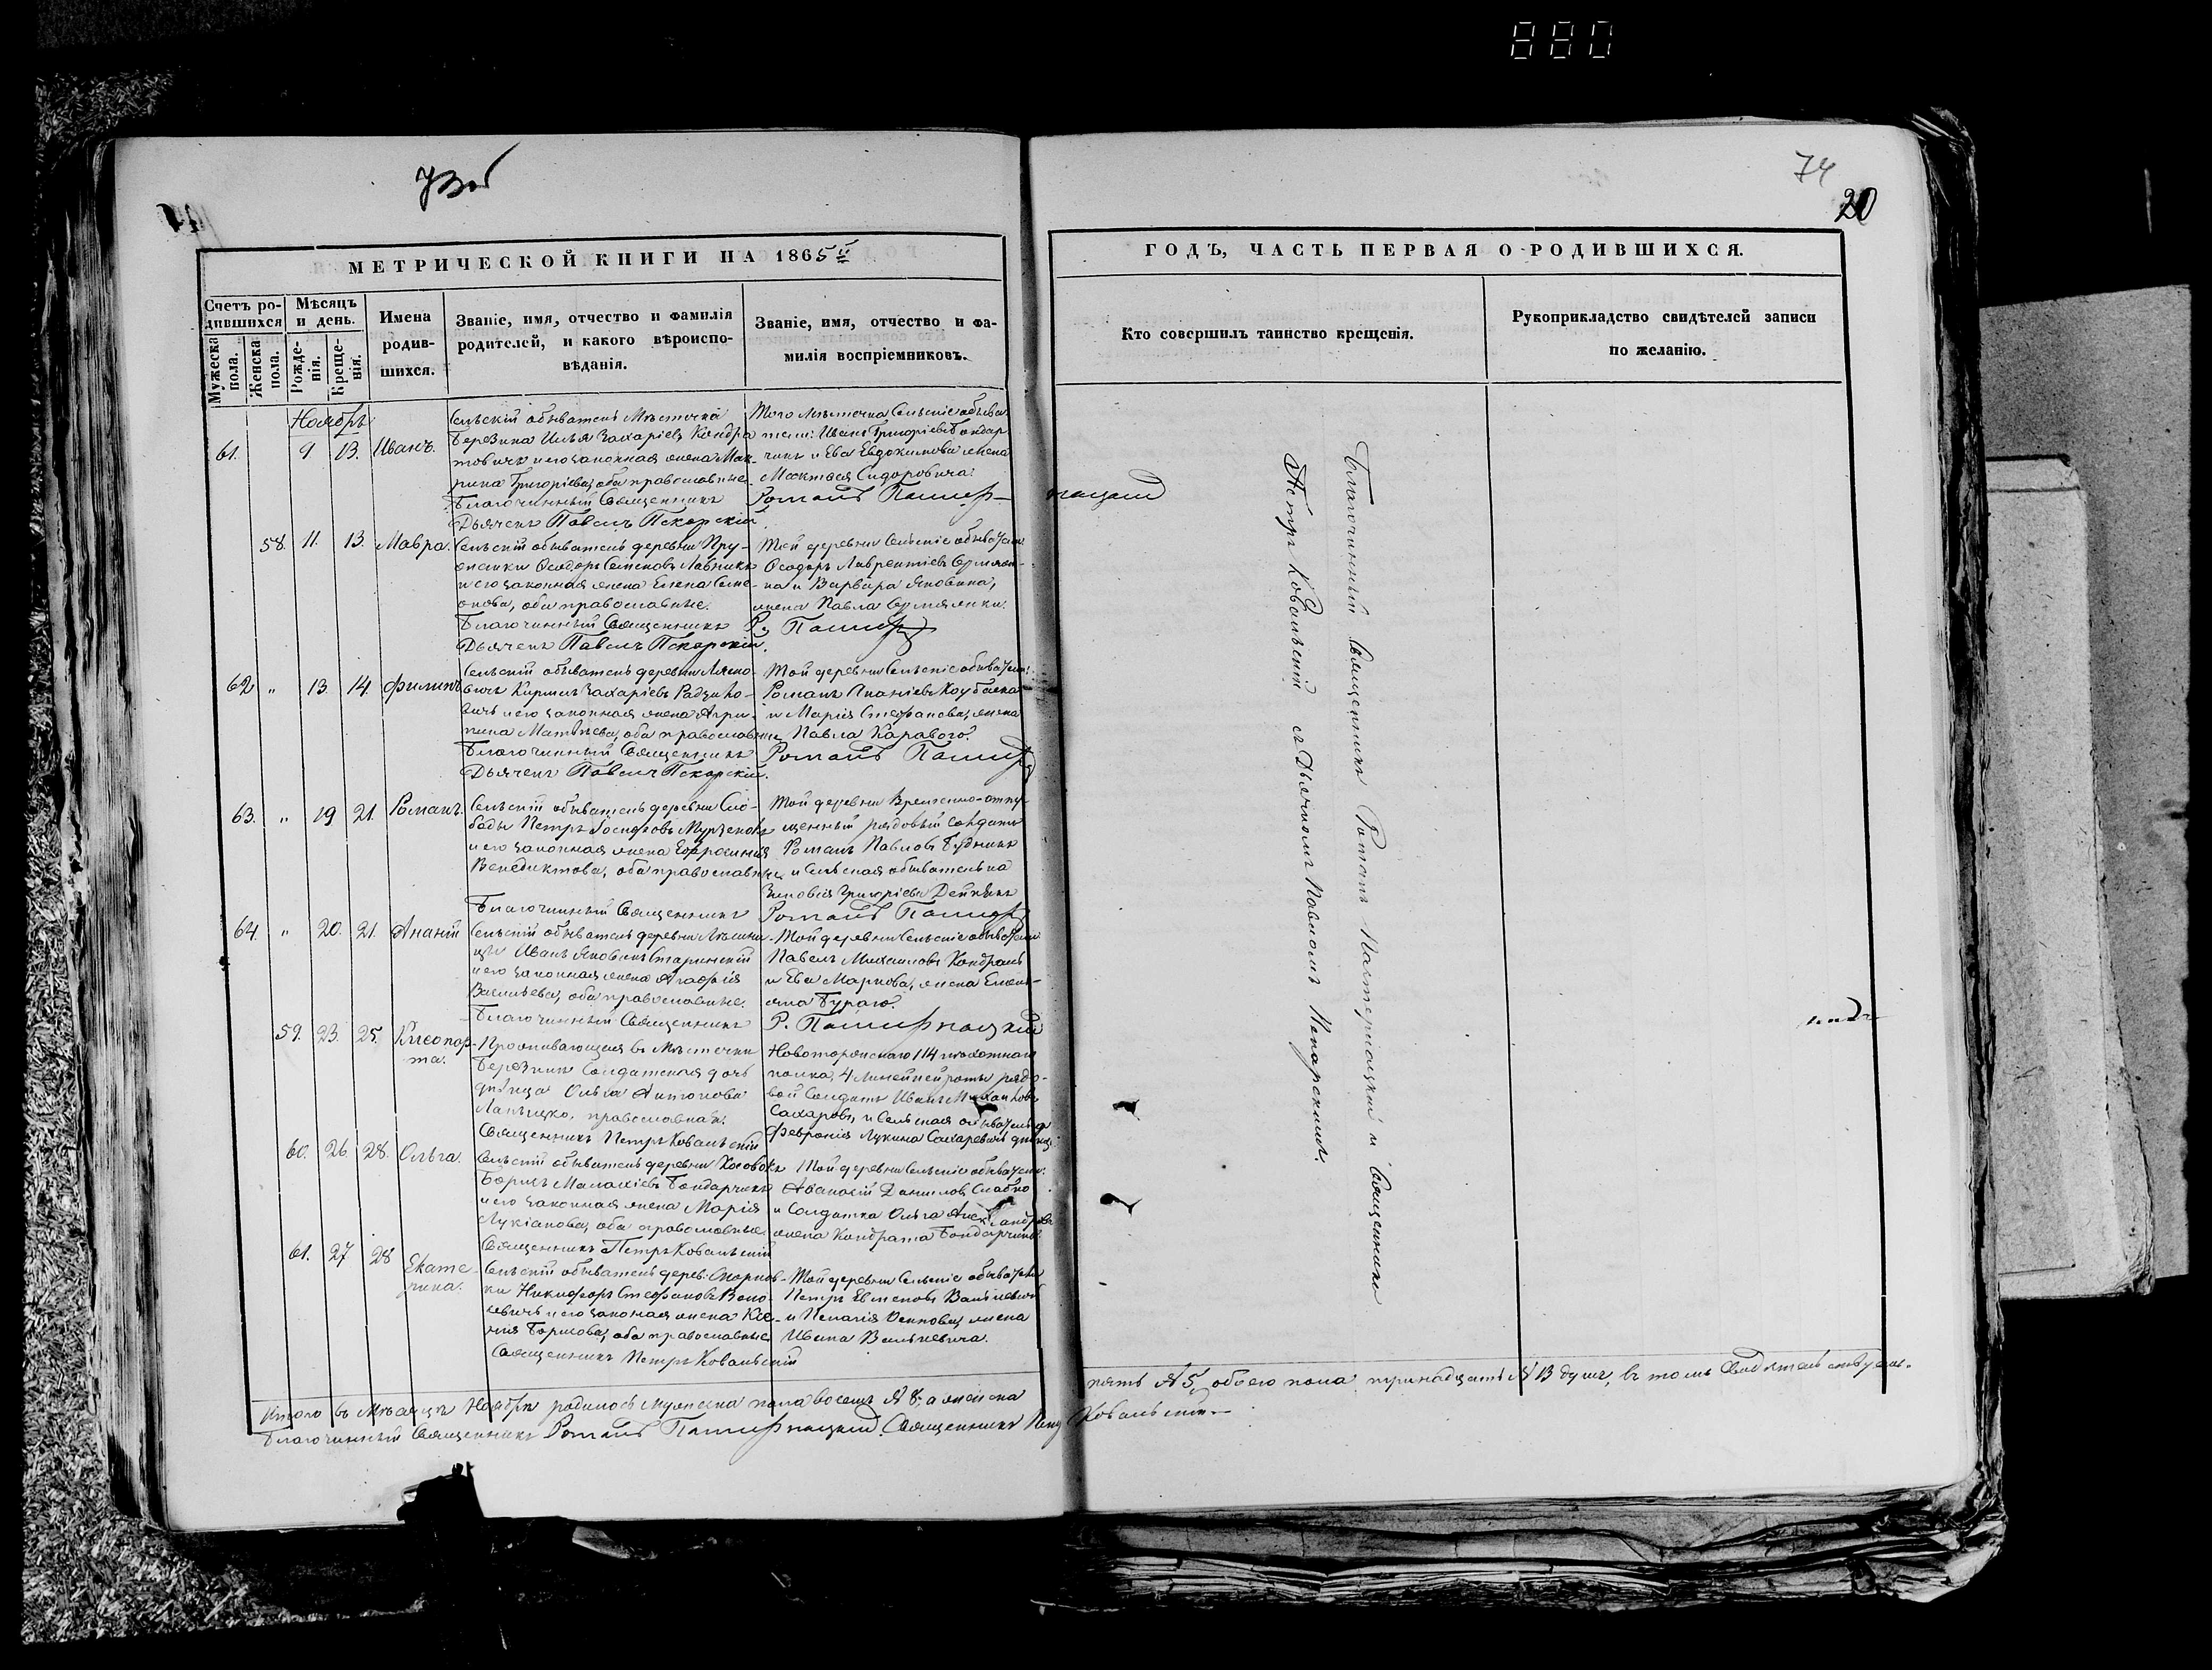 880
74
20
МЕТРИЧЕСКОЙ КНИГИ НА 1865й
Счетъ родившихся
Мужеска пола.
Женска пола.
Мѣсяцъ и день.
Рожденія.
Крещенія.
Имена родившихся.
Званіе, имя, отчество и фамилія
родителей, и какого вѣроисповѣданія.
Званіе, имя, отчество и фамилія воспріемниковъ.
Ноябрь
61. 9 13. Иванъ.
Сельскій обыватель Мѣстечка
Березина Илья Захаріевъ Кондра
товичъ и его законная жена Мак
рина Григоріева, оба православные.
Благочинный Священникъ
Дьячекъ Павелъ Пекарскій.
Того мѣстечка Сельскіе обыва
тели: Иванъ Григоріевъ Бондар
чикъ и Ева Евдокимова жена
Матвея Сидоровича.
Романъ Пастернацкій
58. 11. 13. Мавра.
Сельскій обыватель деревни Пру-
жанки Ѳеодоръ Семеновъ Лавникъ
и его законная жена Елена Симе-
онова, оба православные.
Благочинный Священникъ
Дьячекъ Павелъ Пекарскій.
Той деревни Сельскіе обыватели
Ѳеодоръ Лаврентіевъ
и Варвара Яковина,
жена Павла
Р. Пастер
62 " 13 14 Филипъ
Сельскій обыватель деревни Ляхо-
вичъ Кирилъ Захаріевъ Радзико-
вичъ и его законная жена Агри-
пина Матвѣева, оба православные
Благочинный Священникъ
Дьячекъ Павелъ Пекарскій.
Той деревни Сельскіе обыватели:
Романъ Ананіевъ
и Марія Стефанова, жена
Павла Каравого.
Романъ Пастер
63. " 19 21. Романъ.
Сельскій обыватель деревни Сло-
боды Петръ Іосифовъ
и его законная жена Ефросинія
Венедиктова, оба православные
Благочинный Священникъ
Той деревни Временно-отпу-
щенный рядовый солдатъ
Романъ Павловъ Будникъ
и Сельская обывателька
Зиновія Григоріева
Романъ Пастер
64. " 20. 21. Ананій
Сельскій обыватель деревни
Иванъ Яковлевъ Старинскій
и его законная жена Агафія
Васильева, оба православные.
Благочинный Священникъ
Той деревни Сельскіе обыватели
Павелъ Михаиловъ
и Ева Маркова, жена Емель-
яна Бураго.
Р. Пастернацкій
59. 23. 25.
Проживающая въ Мѣстечкѣ
Березинѣ Солдатская дочь
дѣвица Ольга Антонова
православная.
Священникъ Петръ Ковальскій
Новоторжскаго 114 пѣхотнаго
полка, 4 Линейной роты рядо-
вой Солдатъ Иванъ Михаиловъ
Сахаровъ, и Сельская обывателька
Февронія Лукина Сахаревичъ дѣвица.
60. 26. 28. Ольга.
Сельскій обыватель деревни
Борисъ Малахіевъ Бондарчикъ
и его законная жена Марія
Лукіанова, оба православные.
Священникъ Петръ Ковальскій
Той деревни Сельскіе обыватели:
Аѳанасій Даниловъ Слабко
и Солдатка Ольга Александрова
жена Кондрата Бондарчика.
61. 27 28 Екатерина.
Сельскій обыватель дерев.
Никифоръ Стефановъ
и его законная жена Ксе-
нія Борисова, оба православные
Священникъ Петръ Ковальскій
Той деревни Сельскіе обыватели
Петръ
и Пелагія Осипова, жена
Ивана Валькевича.
Итого въ Мѣсяцѣ Ноябрѣ родилось мужеска пола восемь № 8, а женска
Благочинный Священникъ Романъ Пастернацкій. Священникъ Петръ Ковальскій
ГОДЪ, ЧАСТЬ ПЕРВАЯ О РОДИВШИХСЯ.
Кто совершилъ таинство крещенія.
Рукоприкладство свидѣтелей записи
по желанію.
Благочинный Священникъ Романъ Пастернацкій и Священникъ
Петръ Ковальскій съ Дьячкомъ Павломъ Пекарскимъ.
пять № 5, обоего пола тринадцать № 13 душъ, въ томъ свидѣтельствуемъ.